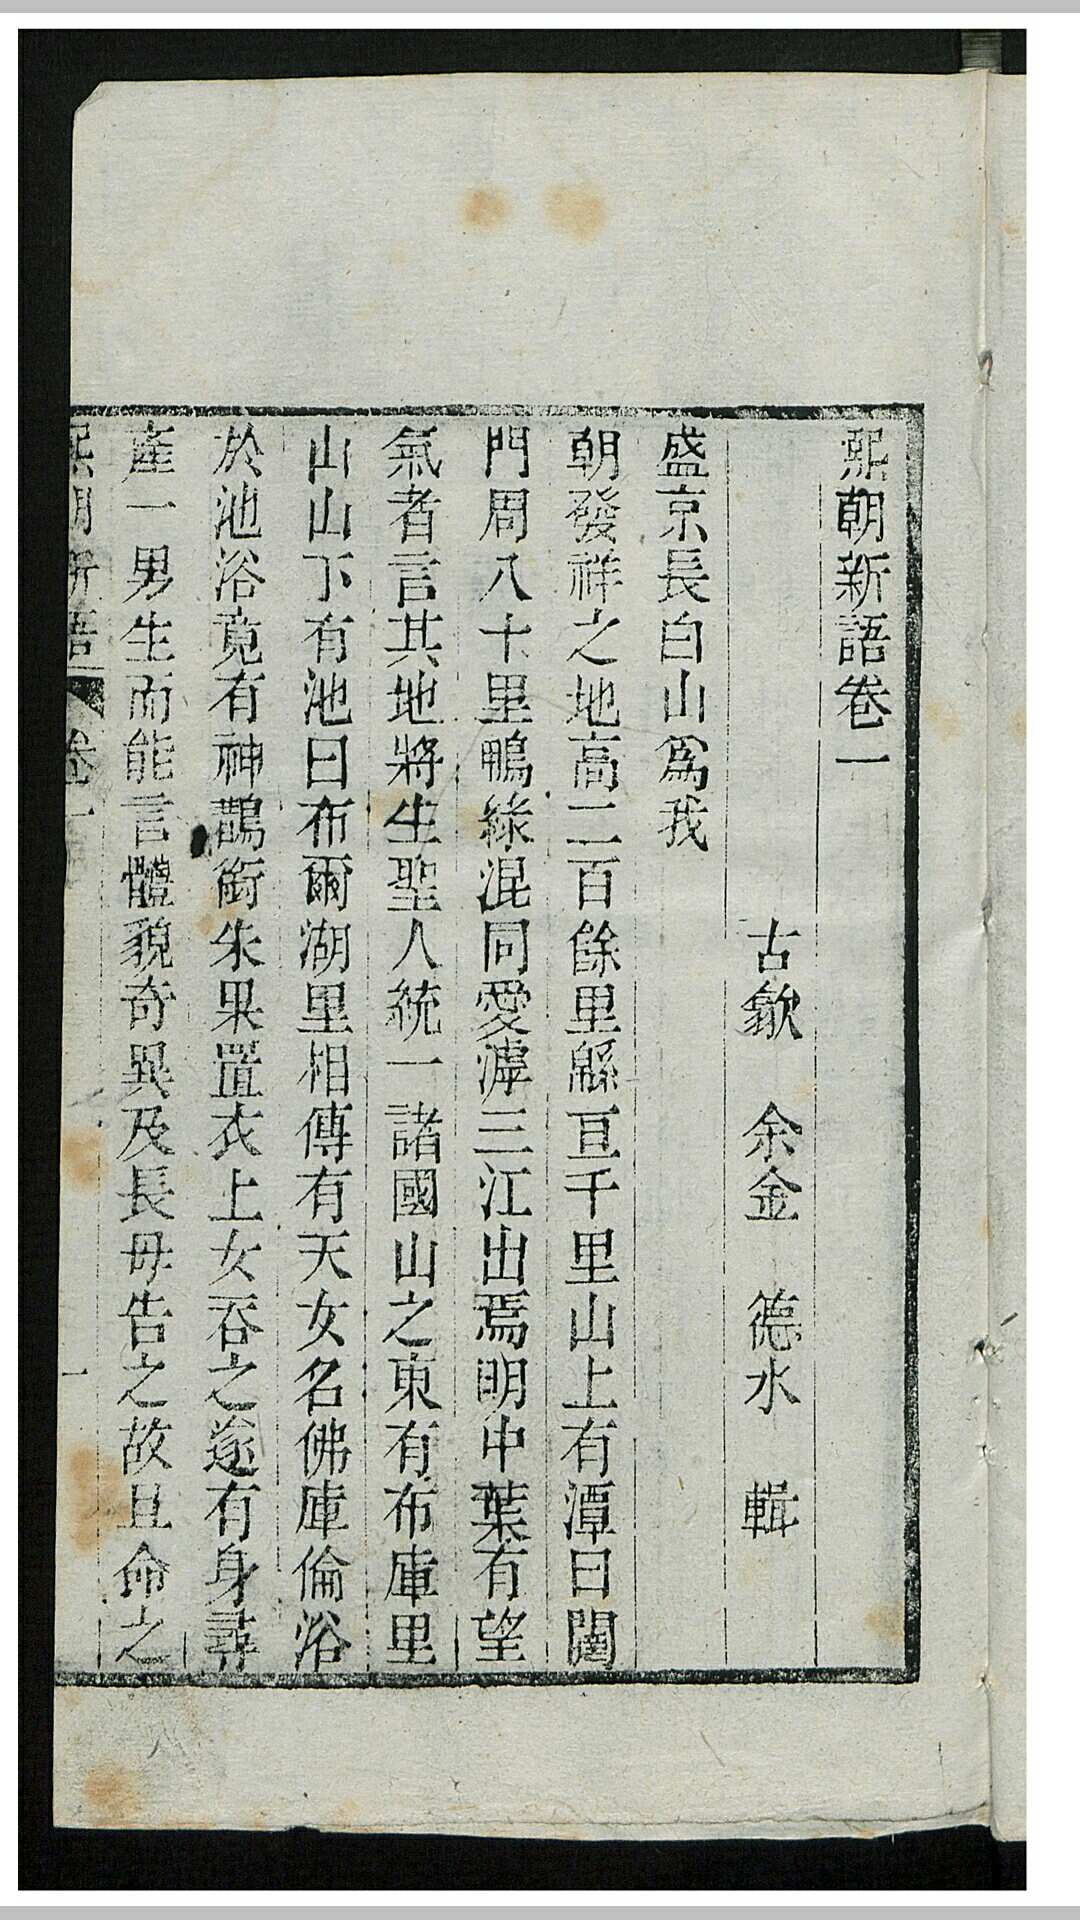 熙朝新語卷一
古歙 余金 德水 輯
盛京長白山為我
朝發祥之地高二百餘里緜亘千里山上有潭曰闥
門周八十里鴨綠混同愛滹三江出焉明中葉有望
氣者言其地將生聖人統一諸國山之東有布庫里
山山下有池曰布爾湖里相傳有天女名佛庫倫浴
於池浴竟有神鵲銜朱果置衣上女吞之遂有身尋
產一男生而能言體貌奇異及長母告之故且命之
熙朝新語 卷一 一